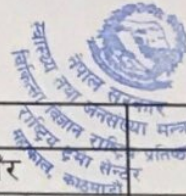 नेपाल सरकार
स्वास्थ्य तथा जनसंख्या मन्त्रा
चिकित्सा विज्ञान राष्ट्रिय प्रतिष्ठ
राष्ट्रिय ट्रमा सेन्टर
महाँकाल, काठमाडौं